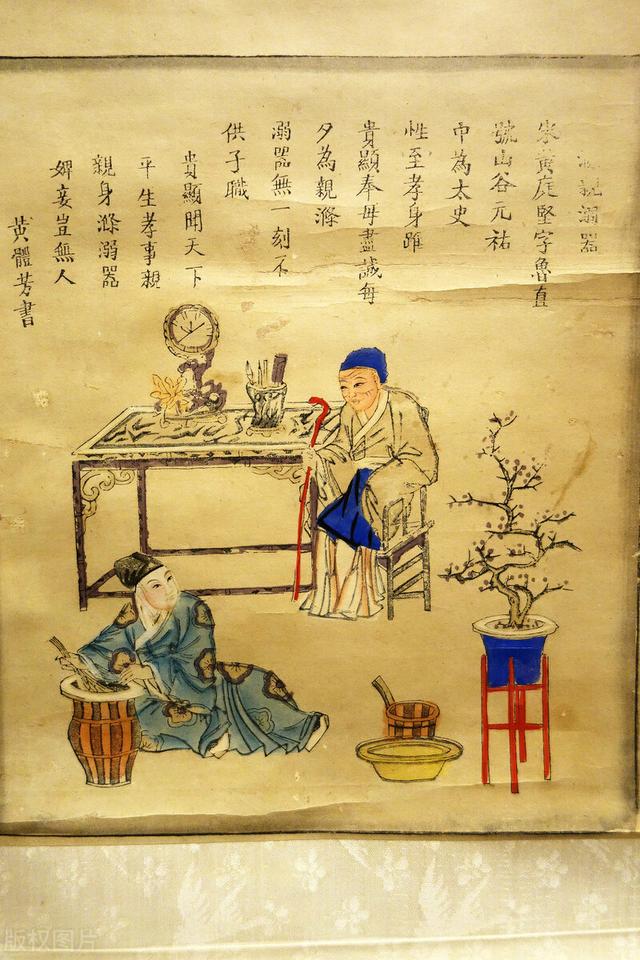 滌親溺器
宋黃庭堅字魯直
號山谷元祐
中為太史
性至孝身雖
貴顯奉母盡誠每
夕為親滌
溺器無一刻不
供子職
貴顯聞天下
平生孝事親
親身滌溺器
婢妾豈無人
黃體芳書
版权图片